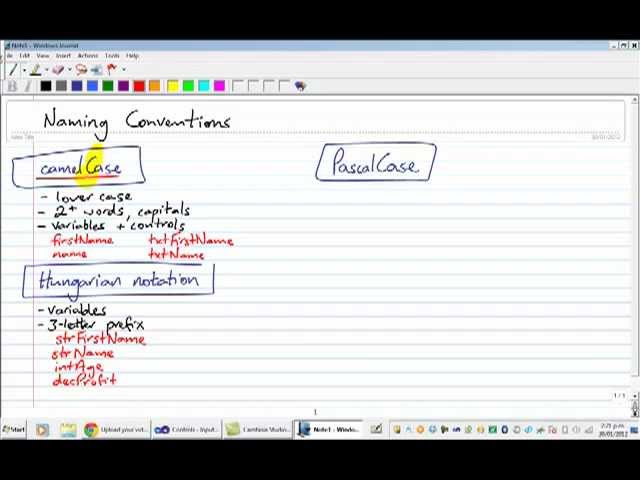 Note1 - Windows Journal
File Edit View Insert Actions Tools Help
B
Naming Conventions
Note Title
30/01/2012
camelCase
PascalCase
- lower case
- 2+ words, capitals
- variables + controls
firstName txtFirstName
name txtName
Hungarian notation
- variables
- 3-letter prefix
strFirstName
strName
intAge
decProfit
1/1
1
Start
Upload your vid...
Controls - Input...
Camtasia Studio...
Note1 - Window...
7:21 p.m.
30/01/2012